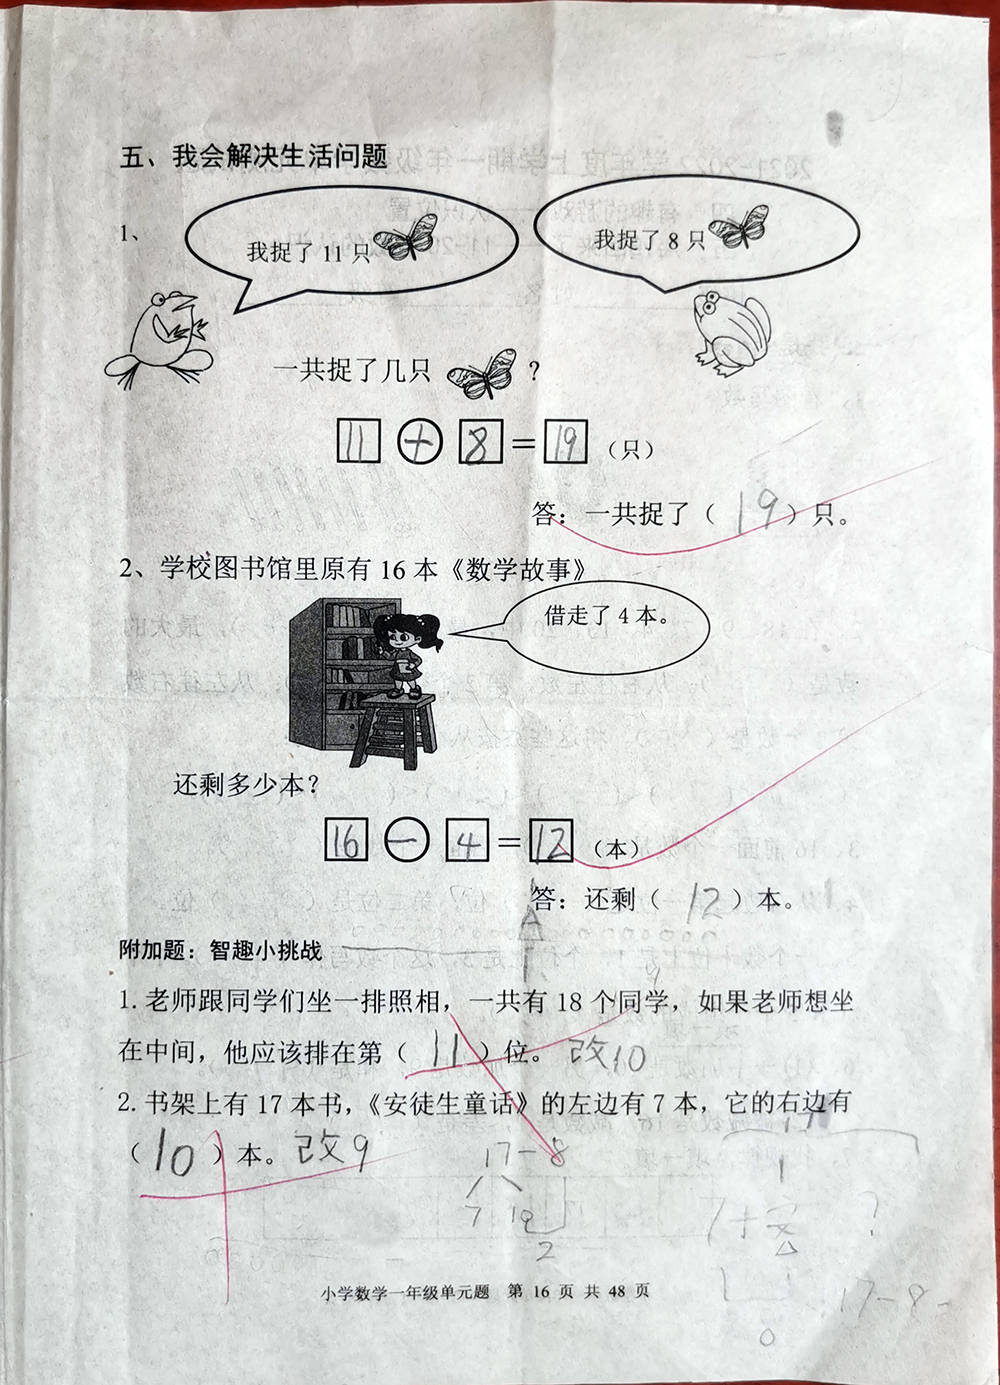 五、我会解决生活问题
1、
我捉了 11 只
我捉了 8 只
一共捉了几只 ？
11 + 8 = 19 （只）
答：一共捉了（ 19 ）只。
2、学校图书馆里原有 16 本《数学故事》
借走了 4 本。
还剩多少本？
16 － 4 = 12 （本）
答：还剩（ 12 ）本。
附加题：智趣小挑战
1. 老师跟同学们坐一排照相，一共有 18 个同学，如果老师想坐
在中间，他应该排在第（ 11 ）位。 改10
2. 书架上有 17 本书，《安徒生童话》的左边有 7 本，它的右边有
（ 10 ）本。 改9
17-8
7 10
2
17
1
7+ ?
17-8=
小学数学一年级单元题 第 16 页 共 48 页